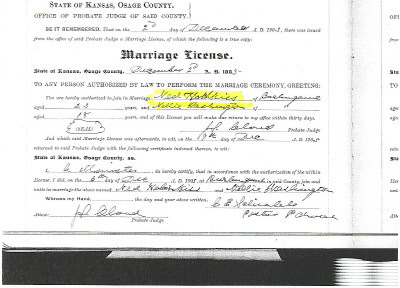 STATE OF KANSAS, OSAGE COUNTY.
OFFICE OF PROBATE JUDGE OF SAID COUNTY.
BE IT REMEMBERED, That on the 2d day of December A. D. 190, there was issued
from the office of said Probate Judge a Marriage License, of which the following is a true copy:
Marriage License.
State of Kansas, Osage County, December 2d A. D. 190
TO ANY PERSON AUTHORIZED BY LAW TO PERFORM THE MARRIAGE CEREMONY, GREETING:
You are hereby authorized to join in Marriage Ned of Burlingame
aged 23 years and Washington of
aged 18 years, and of this License you will make due return to my office within thirty days.
(SEAL) Probate Judge
And which said Marriage License was afterwards, to wit, on the day of Dec A. D. 190
returned to said Probate Judge with the following certificate indorsed thereon, to wit:
State of Kansas, Osage County, ss.
I, a Minister do hereby certify, that in accordance with the authorization of the within
License, I did, on the 6th day of Dec A. D. 190 at Burlingame in said County join and
unite in marriage the above named Ned and Washington
Witness my Hand, the day and year above written.
Attest: Probate Judge
Pastor